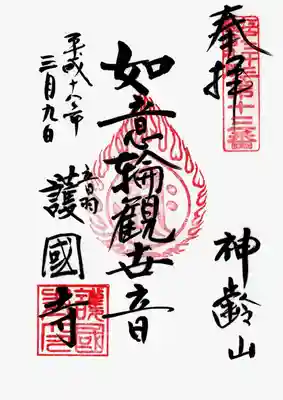 奉拝
神齢山
如意輪観世音
平成十八年
三月九日
音羽
護國寺